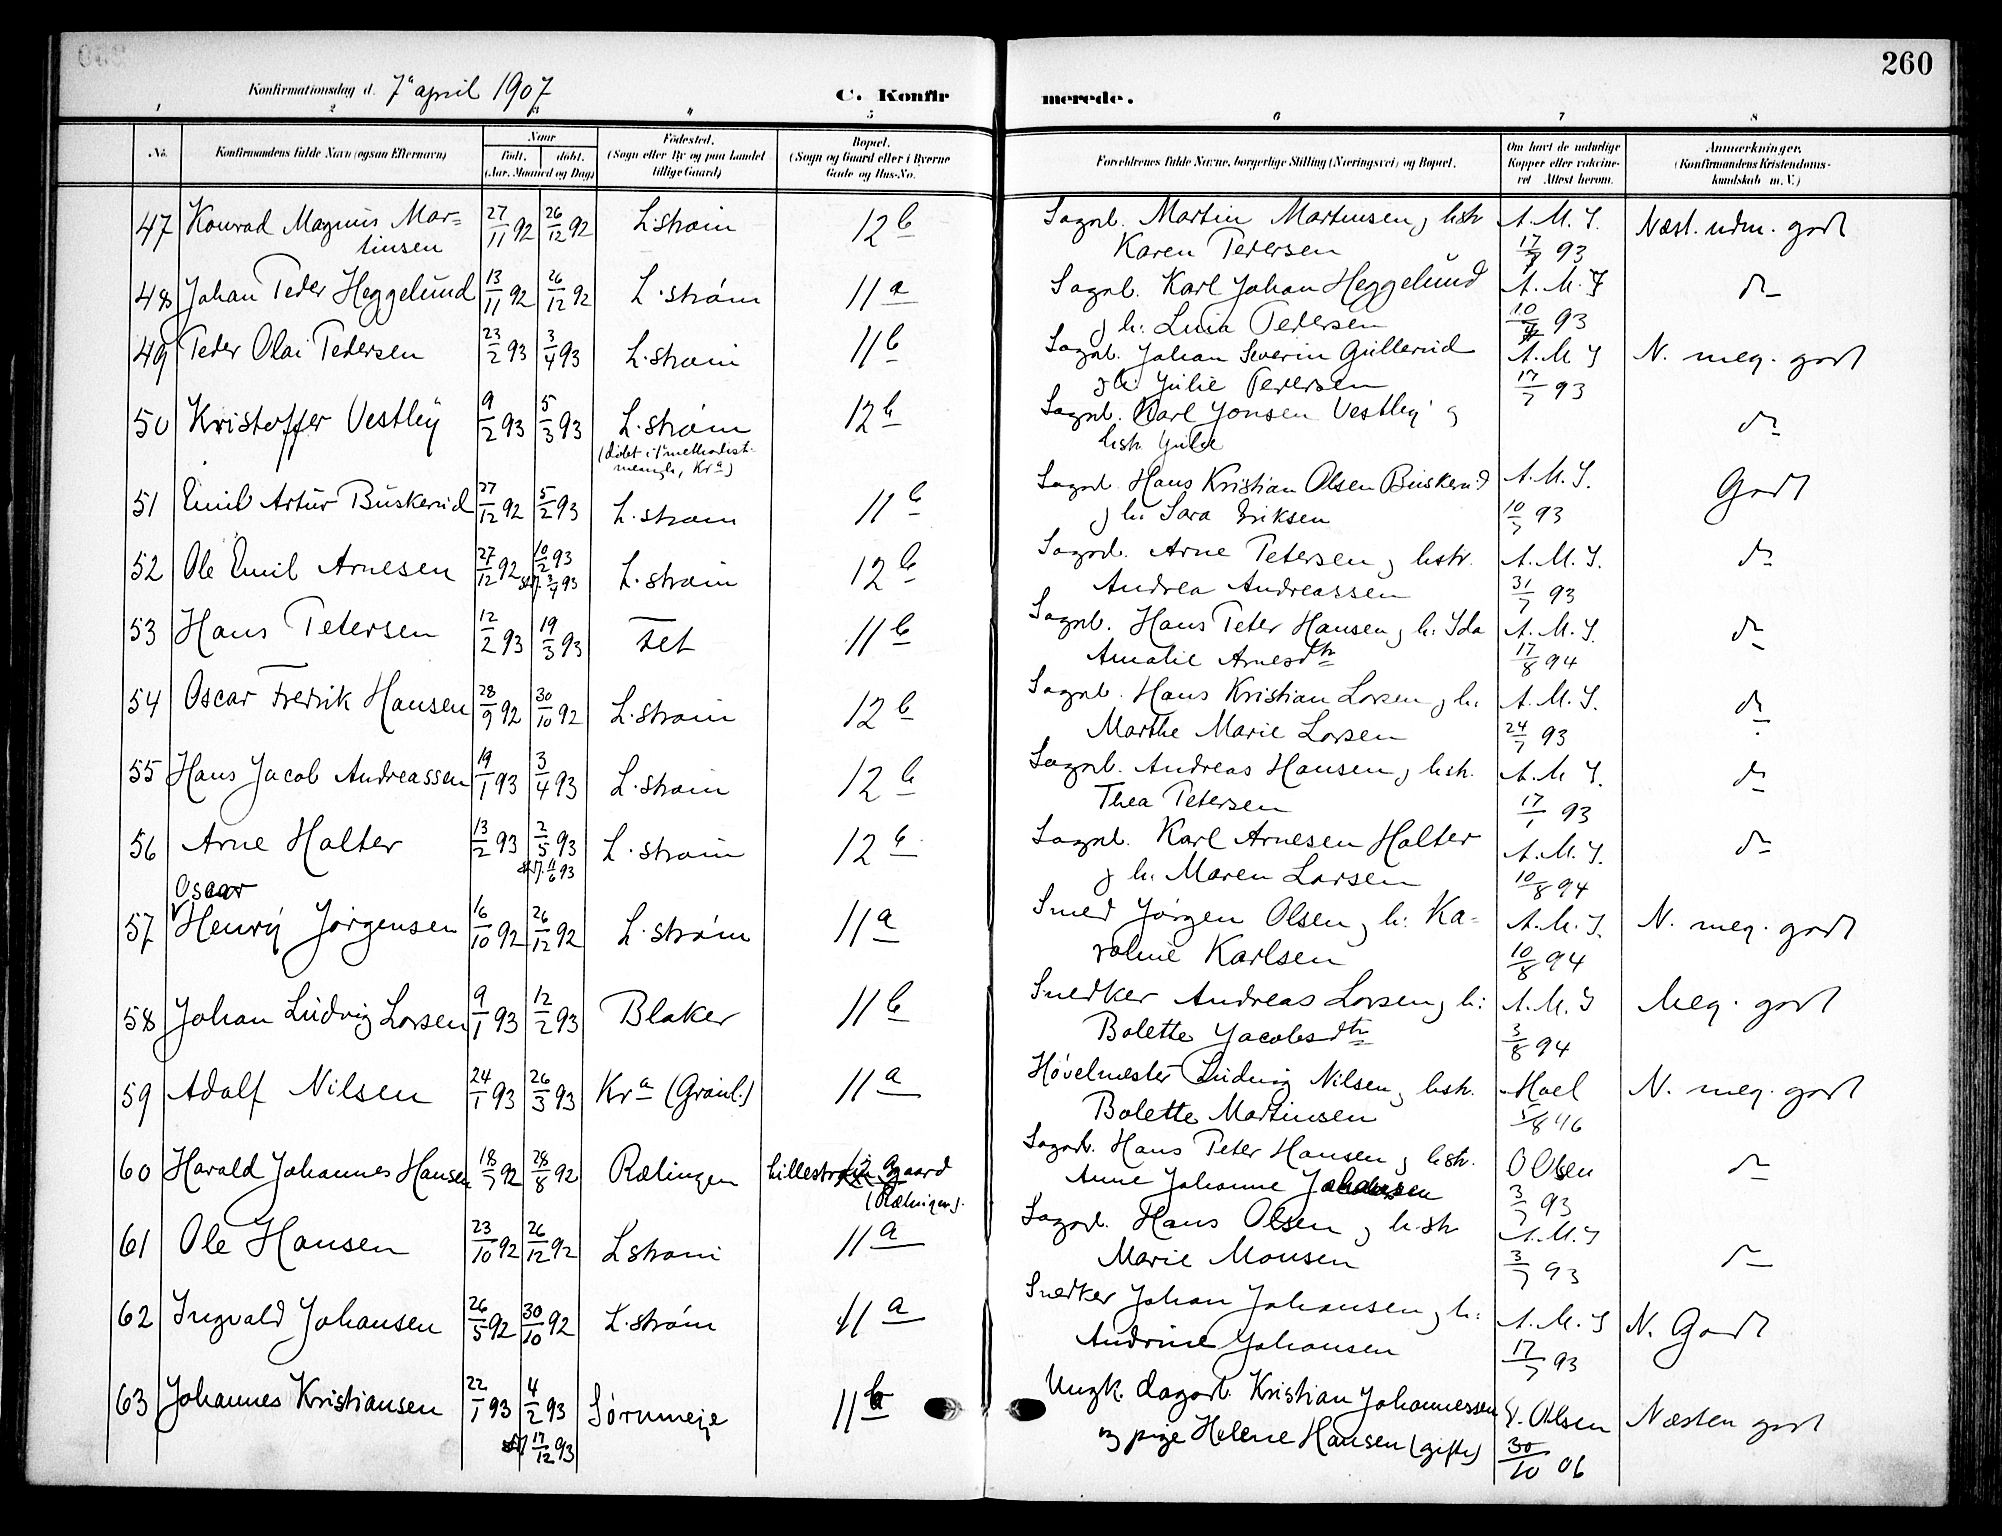 260
Konfirmationsdag d. 7de april 1907
C. Konfir merede.
1 2 3 4 5 6 7 8
No. Konfirmandens fulde Navn (ogsaa Efternavn) Naar født. døbt. (Aar, Maaned og Dag) Fødested. (Sogn eller By og paa Landet tillige Gaard) Bopæl. (Sogn og Gaard eller i Byerne Gade og Hus-No. Forældrenes fulde Navne, borgerlige Stilling (Næringsvei) og Bopæl. Om havt de naturlige Kopper eller vakcineret. Attest herom. Anmærkninger. (Konfirmandens Kristendomskundskab m. V.)
47 Konrad Magnus Mar= 27/11 92 26/12 92 L.strøm 12 b Sagarb. Martin Martinsen, hstr A.M.S. Næst. udm. godt
tinsen Karen Pedersen 17/7 93
48 Johan Peder Heggelund 13/11 92 26/12 92 L.strøm 11 a Sagarb. Karl Johan Heggelund A.M.S do
og h. Lina Pedersen 10/7 93
49 Peder Olai Pedersen 23/2 93 3/4 93 L.strøm 11 b Sagarb. Johan Severin Gullerud A.M.S N. meg. godt
og h. Julie Pedersen 17/7 93
50 Kristoffer Vestby 9/2 93 5/3 93 L.strøm 12 b Sagarb. Karl Jonsen Vestby og do
(døbt i 1ste methodist- menigh, Kra) hstr Julie
51 Emil Artur Buskerud 27/12 92 5/2 93 L.strøm 11 b Sagarb. Hans Kristian Olsen Buskerud A.M.S. Godt
og h. Sara Eriksen 10/7 93
52 Ole Emil Arnesen 27/12 92 10/2 93 L.strøm 12 b Sagarb. Arne Petersen, hstr. A.M.S. do
3/4 93 Andrea Andreassen 31/7 93
53 Hans Petersen 12/2 93 19/3 93 Fet 11 b Sagarb. Hans Peter Hansen, h. Ida A.M.S. do
Amalie Arnesdtr 17/8 94
54 Oscar Fredrik Hansen 28/9 92 30/10 92 L.strøm 12 b Sagarb. Hans Kristian Larsen, h. A.M.S. do
Marthe Marie Larsen 24/7 93
55 Hans Jacob Andreassen 19/1 93 3/4 93 L.strøm 12 b Sagarb. Andreas Hansen, hstr. A.M.S. do
Thea Petersen 17/1 93
56 Arne Holter 13/2 93 2/5 93 L.strøm 12 b Sagarb. Karl Arnesen Holter A.M.S. do
11/6 93 og h. Maren Larsen 10/8 94
Oscar
57 Henry Jørgensen 16/10 92 26/12 92 L.strøm 11 a Smed Jørgen Olsen, h: Ka= A.M.S. N. meg. godt
roline Karlsen 10/8 94
58 Johan Ludvig Larsen 9/1 93 12/2 93 Blaker 11 b Snedker Andreas Larsen, h: A.M.S Meg. godt
Bolette Jacobsdtr 3/8 94
59 Adolf Nilsen 24/1 93 26/3 93 Kra (Grønl.) 11 a Høvelmester Ludvig Nilsen, hstr. N. meg. godt
Bolette Martinsen
60 Harald Johannes Hansen 18/7 92 28/8 92 Rælingen Lillestrøm Gaard Sagarb. Hans Peter Hansen, hstr. O Olsen do
(Rælingen). Anne Johanne 3/7 93
61 Ole Hansen 23/10 92 26/12 92 L.strøm 11 a Sagarb. Hans Olsen, hstr A.M.S do
Marie Monsen 3/7 93
62 Ingvald Johansen 26/5 92 30/10 92 L.strøm 11 a Snedker Johan Johansen, h: A.M.S N. Godt
Andrine Johansen 17/7 93
63 Johannes Kristiansen 22/1 93 4/2 93 Sørumeje 11 b Ungk. dagarb. Kristian Johannessen Olsen Næsten godt
17/12 93 og pige Helene Hansen (gifte) 30/10 06